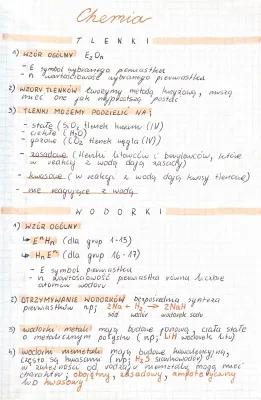 Chemia
TLENKI
1) WZÓR OGÓLNY E₂On
- E symbol wybranego pierwiastka
- n wartościowość wybranego pierwiastka
2) WZORY TLENKÓW tworzymy metodą krzyżową, muszą
mieć one jak najprostszą postać
3) TLENKI MOŻEMY PODZIELIĆ NA:
- stałe (SiO₂ tlenek krzemu (IV)
- ciekłe (H₂O)
- gazowe (CO₂ tlenek węgla (IV))
- zasadowe (tlenki litowców i berylowców, które
w reakcji z wodą dają zasady)
- kwasowe (w reakcji z wodą dają kwasy tlenowe)
- nie reagujące z wodą
WODORKI
1) WZÓR OGÓLNY
↳ EⁿHn (dla grup 1-15)
↳ HnEⁿ (dla grup 16-17)
- E symbol pierwiastka
- n wartościowość pierwiastka równa liczbie
atomów wodoru
2) OTRZYMYWANIE WODORKÓW bezpośrednia synteza
pierwiastków np; 2Na + H₂ → 2NaH
sód wodór wodorek sodu
3) wodorki metali mają budowę jonową, ciała stałe
o metalicznym połysku (np; LiH wodorek litu)
4) wodorki niemetali mają budowę kowalencyjną,
często są kwasami (np; H₂S siarkowodór)
w zależności od rodzaju niemetalu mogą mieć
charakter; obojętny, zasadowy, amfoteryczny
lub kwasowy